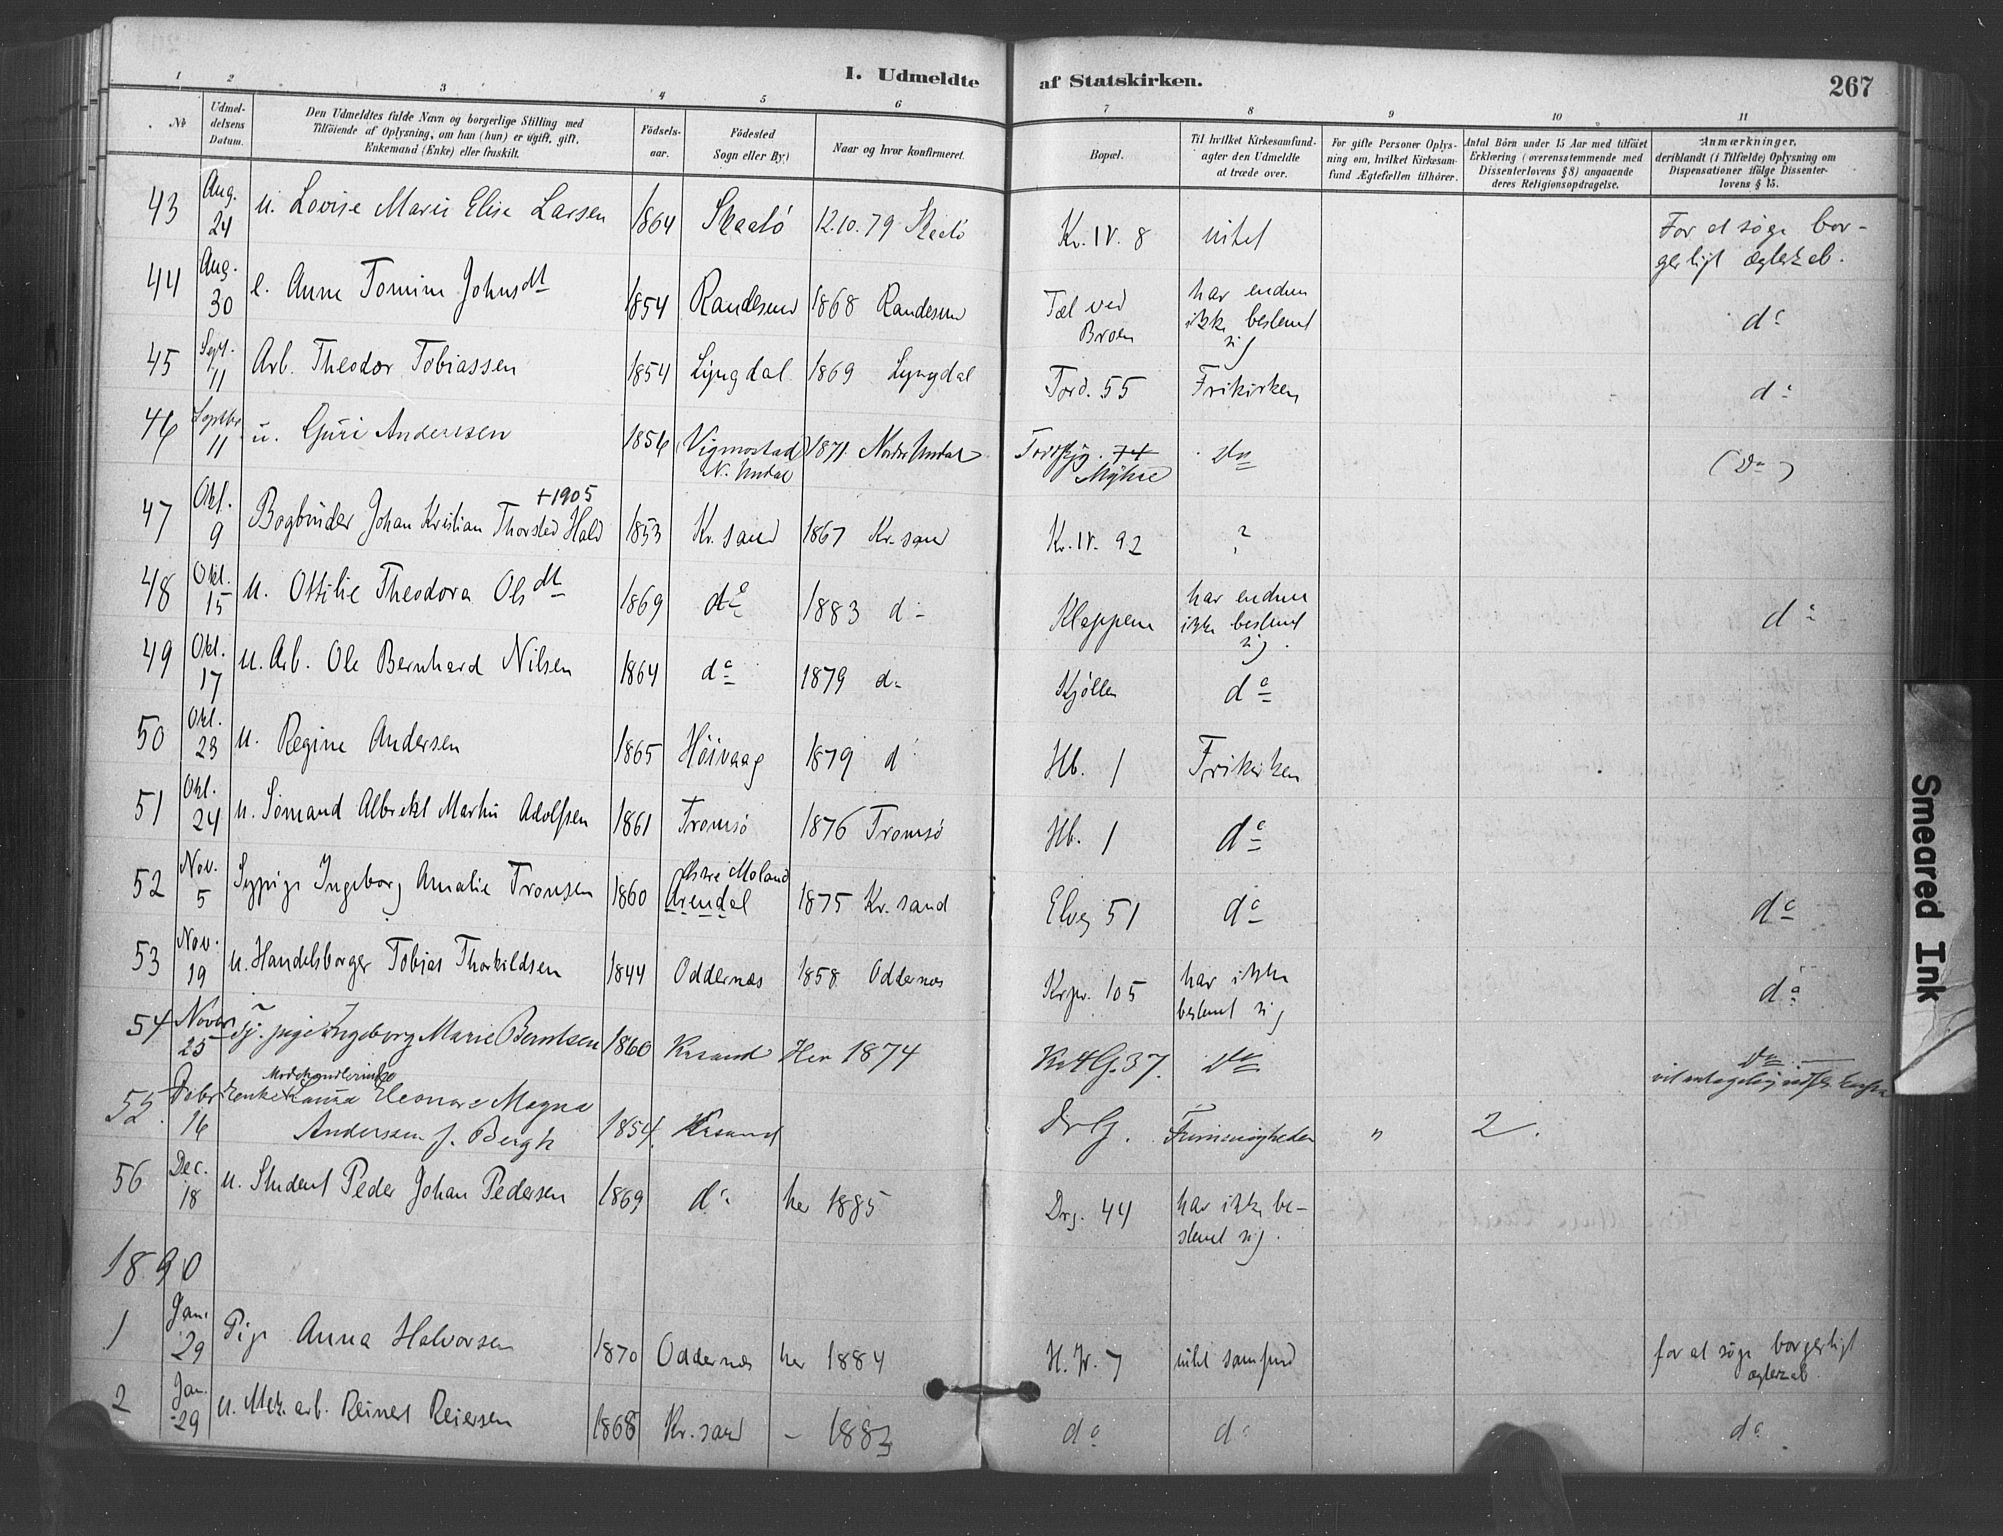 I. Udmeldte af Statskirken. 267
1 2 3 4 5 6 7 8 9 10 11
№
Udmel-
delsens
Datum.
Den Udmeldtes fulde Navn og borgerlige Stilling med
Tilföiende af Oplysning, om han (hun) er ugift, gift,
Enkemand (Enke) eller fraskilt.
Födsels-
aar.
Födested
Sogn eller By.)
Naar og hvor konfirmeret.
Bopæl.
Til hvilket Kirkesamfund
agter den Udmeldte
at træde over.
For gifte Personer Oplys-
ning om, hvilket Kirkesam-
fund Ægtefællen tilhörer.
Antal Börn under 15 Aar med tilföiet
Erklæring (overensstemmende med
Dissenterlovens § 8) angaaende
deres Religionsopdragelse.
Anmærkninger,
deriblandt (i Tilfælde) Oplysning om
Dispensationer ifölge Dissenter-
lovens § 15.
43 Aug. 24 u. Lovise Marie Elise Larsen 1864 Skaatö 12.10.79 Skaatö Kr. IV. 8 intet For at søge bor-
gerligt ægteskab.
44 Aug. 30 e. Anne Tomine Johnsdt 1854 Randesund 1868 Randesund Tæl ved
Broen har endnu
ikke bestemt
sig d o
45 Sept. 11 Arb. Theodor Tobiassen 1854 Lyngdal 1869 Lyngdal Tord. 55 Frikirken d o
46 Septbr. 11 u. Guri Anderssen 1856 (Vigmostad)
N. Undal 1871 Nordre Undal 74 do (Do)
47 Okt. 9 Bogbinder Johan Kristian Thorsted Hald +1905 1853 Kr. sand 1867 Kr. sand Kr. IV. 92 ?
48 Okt. 15 u. Ottilie Theodora Olsdt 1869 do 1883 d - Kleppene har endnu
ikke bestemt
sig. d o
49 Okt. 17 u. Arb. Ole Bernhard Nilsen 1864 do 1879 d - Kjöllen do
50 Okt. 23 u. Regine Andersen 1865 Höivaag 1879 d Hb. 1 Frikirken
51 Okt. 24 u. Sömand Albrekt Martin Adolfsen 1861 Tromsö 1876 Tromsö Hb. 1 do
52 Nov. 5 Sypige Ingeborg Amalie Tromsen 1860 Østre Moland
Arendal 1875 Kr. sand Elveg 51 do do
53 Nov. 19 u. Handelsborger Tobias Thorkildsen 1844 Oddernæs 1858 Oddernæs 105 har ikke
bestemt sig do
54 Novbr 25 Tj. pige Ingeborg Marie Berntsen 1860 Krsand Her 1874 37. do Do
55. Dcbr 16 enke Modehandlerinde
Laura Eleonore Magna
Anderssen f. Bergh 1854. Krsand Dr G. " 2.
56 Dec. 18 u. Student Peder Johan Pedersen 1869 do her 1885 Drg. 44 har ikke be-
stemt sig.
1890
1 Jan. 29 Pige Anna Halvorsen 1870 Oddernæs her 1884 7 intet samfund for at søge borgerligt
ægteskab
2 Jan. 29 u. Mek. arb. Reinert Reiersen 1868 Kr. sand - 1883 do do do
Smeared Ink